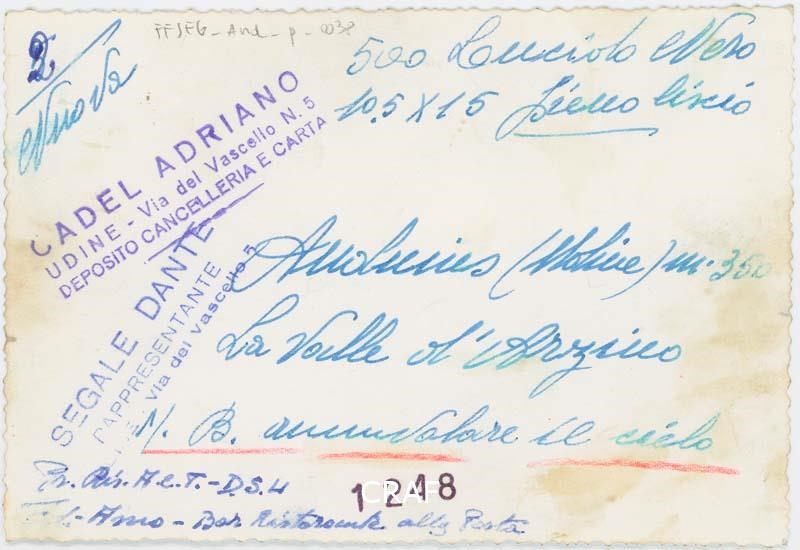 FFSFG-And-p-0038
2
Nuova
500 Lucciola Nero
10.5 X 15 Pieno liscio
CADEL ADRIANO
UDINE - Via del Vascello N. 5
DEPOSITO CANCELLERIA E CARTA
SEGALE DANTE
RAPPRESENTANTE
Via del Vascello 5
Anduins (Moline) m. 350
La Valle d'Arzino
N. B. annuvolare il cielo
Ris. A e T. - D.S.4
- Bar Ristorante alla Posta
1248
CRAF